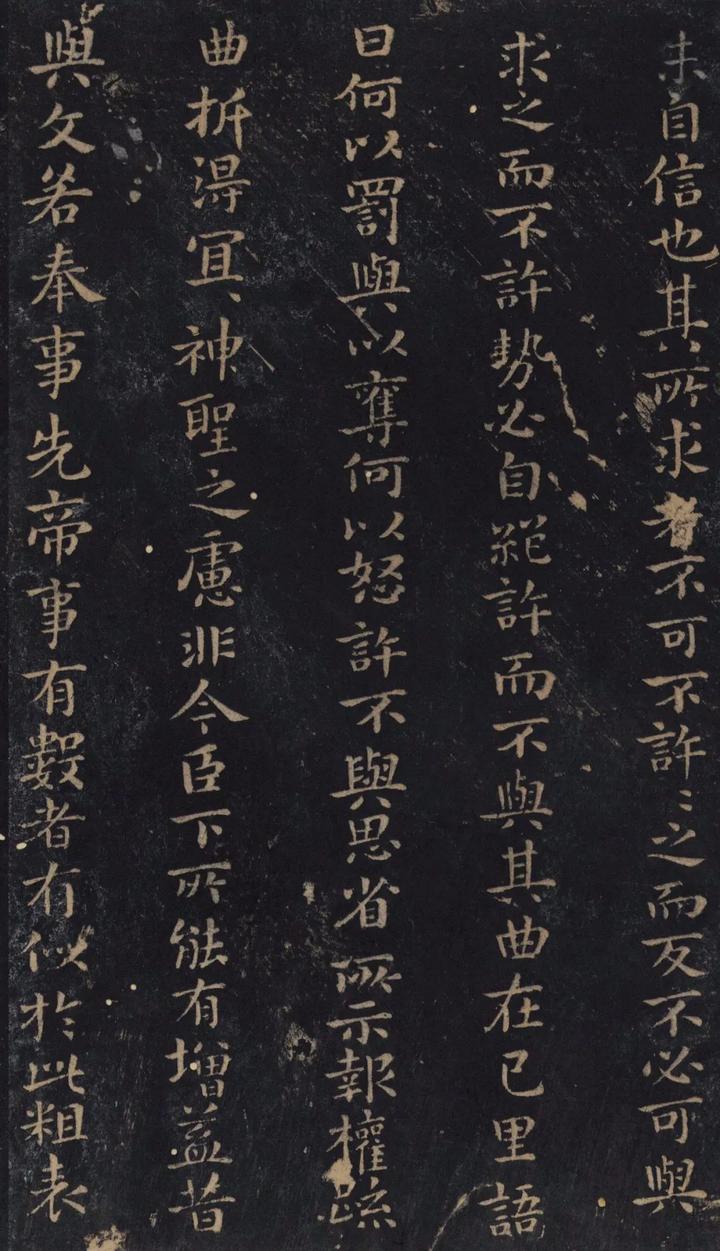 未自信也其所求者不可不許〻之而反不必可與
求之而不許勢必自絕許而不與其曲在己里語
曰何以罰與以奪何以怒許不與思省所示報權疏
曲折得宜神聖之慮非今臣下所能有增益昔
與文若奉事先帝事有數者有似於此粗表